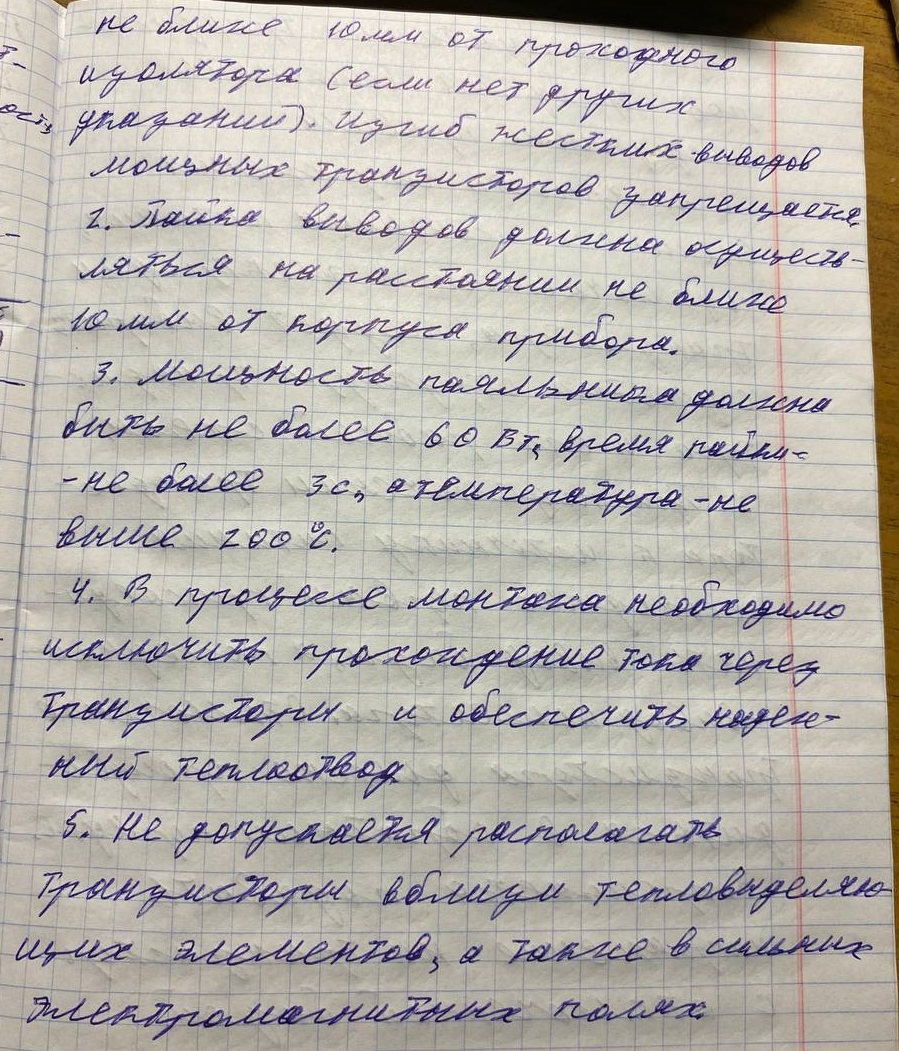 не ближе 10 мм от проходного
изолятора (если нет других
указаний). Изгиб жестких выводов
мощных транзисторов запрещается.
2. Пайка выводов должна осуществ-
ляться на расстоянии не ближе
10 мм от корпуса прибора.
3. Мощность паяльника должна
быть не более 60 Вт, время пайки-
-не более 3с, а температура -не
выше 200°С.
4. В процессе монтажа необходимо
исключить прохождение тока через
транзисторы и обеспечить надеж-
ный теплоотвод.
5. Не допускается располагать
транзисторы вблизи тепловыделяю-
щих элементов, а также в сильных
электромагнитных полях.